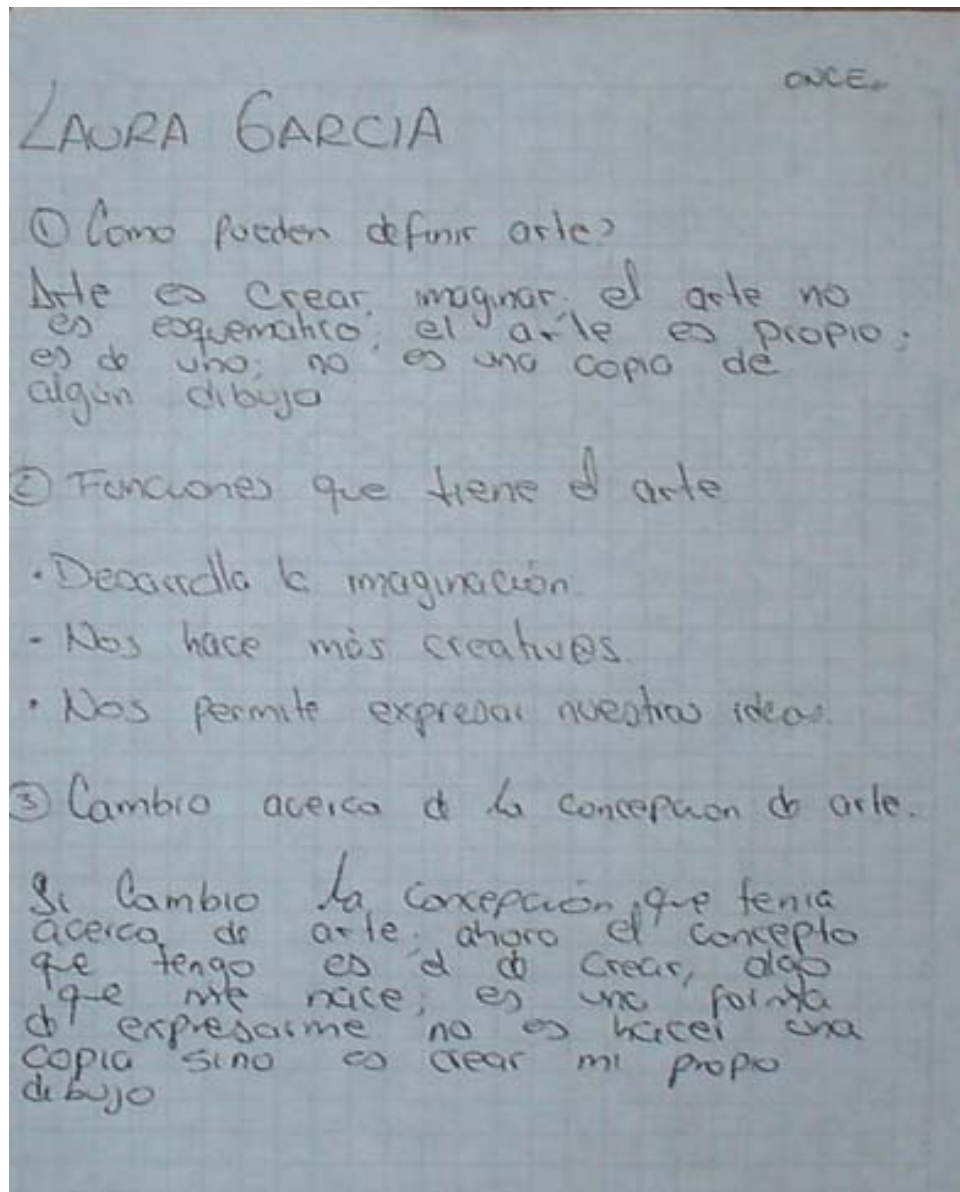 ONCE.
LAURA GARCIA
① Como pueden definir arte?
Arte es crear, imaginar; el arte no
es esquematico; el arte es propio;
es de uno; no es una copia de
algún dibujo
② Funciones que tiene el arte
• Desarrolla la imaginación.
- Nos hace más creativ@s.
• Nos permite expresar nuestras ideas.
③ Cambio acerca de la concepcion de arte.
Si Cambio la concepción que tenia
acerca de arte. ahora el concepto
que tengo es el de crear, algo
que me nace; es una forma
de expresarme no es hacer una
copia sino es crear mi propio
dibujo